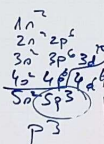 1s²
2s² 2p⁶
3s² 3p⁶ 3d
4s² 4p⁶ 4d
5s² 5p³
p³